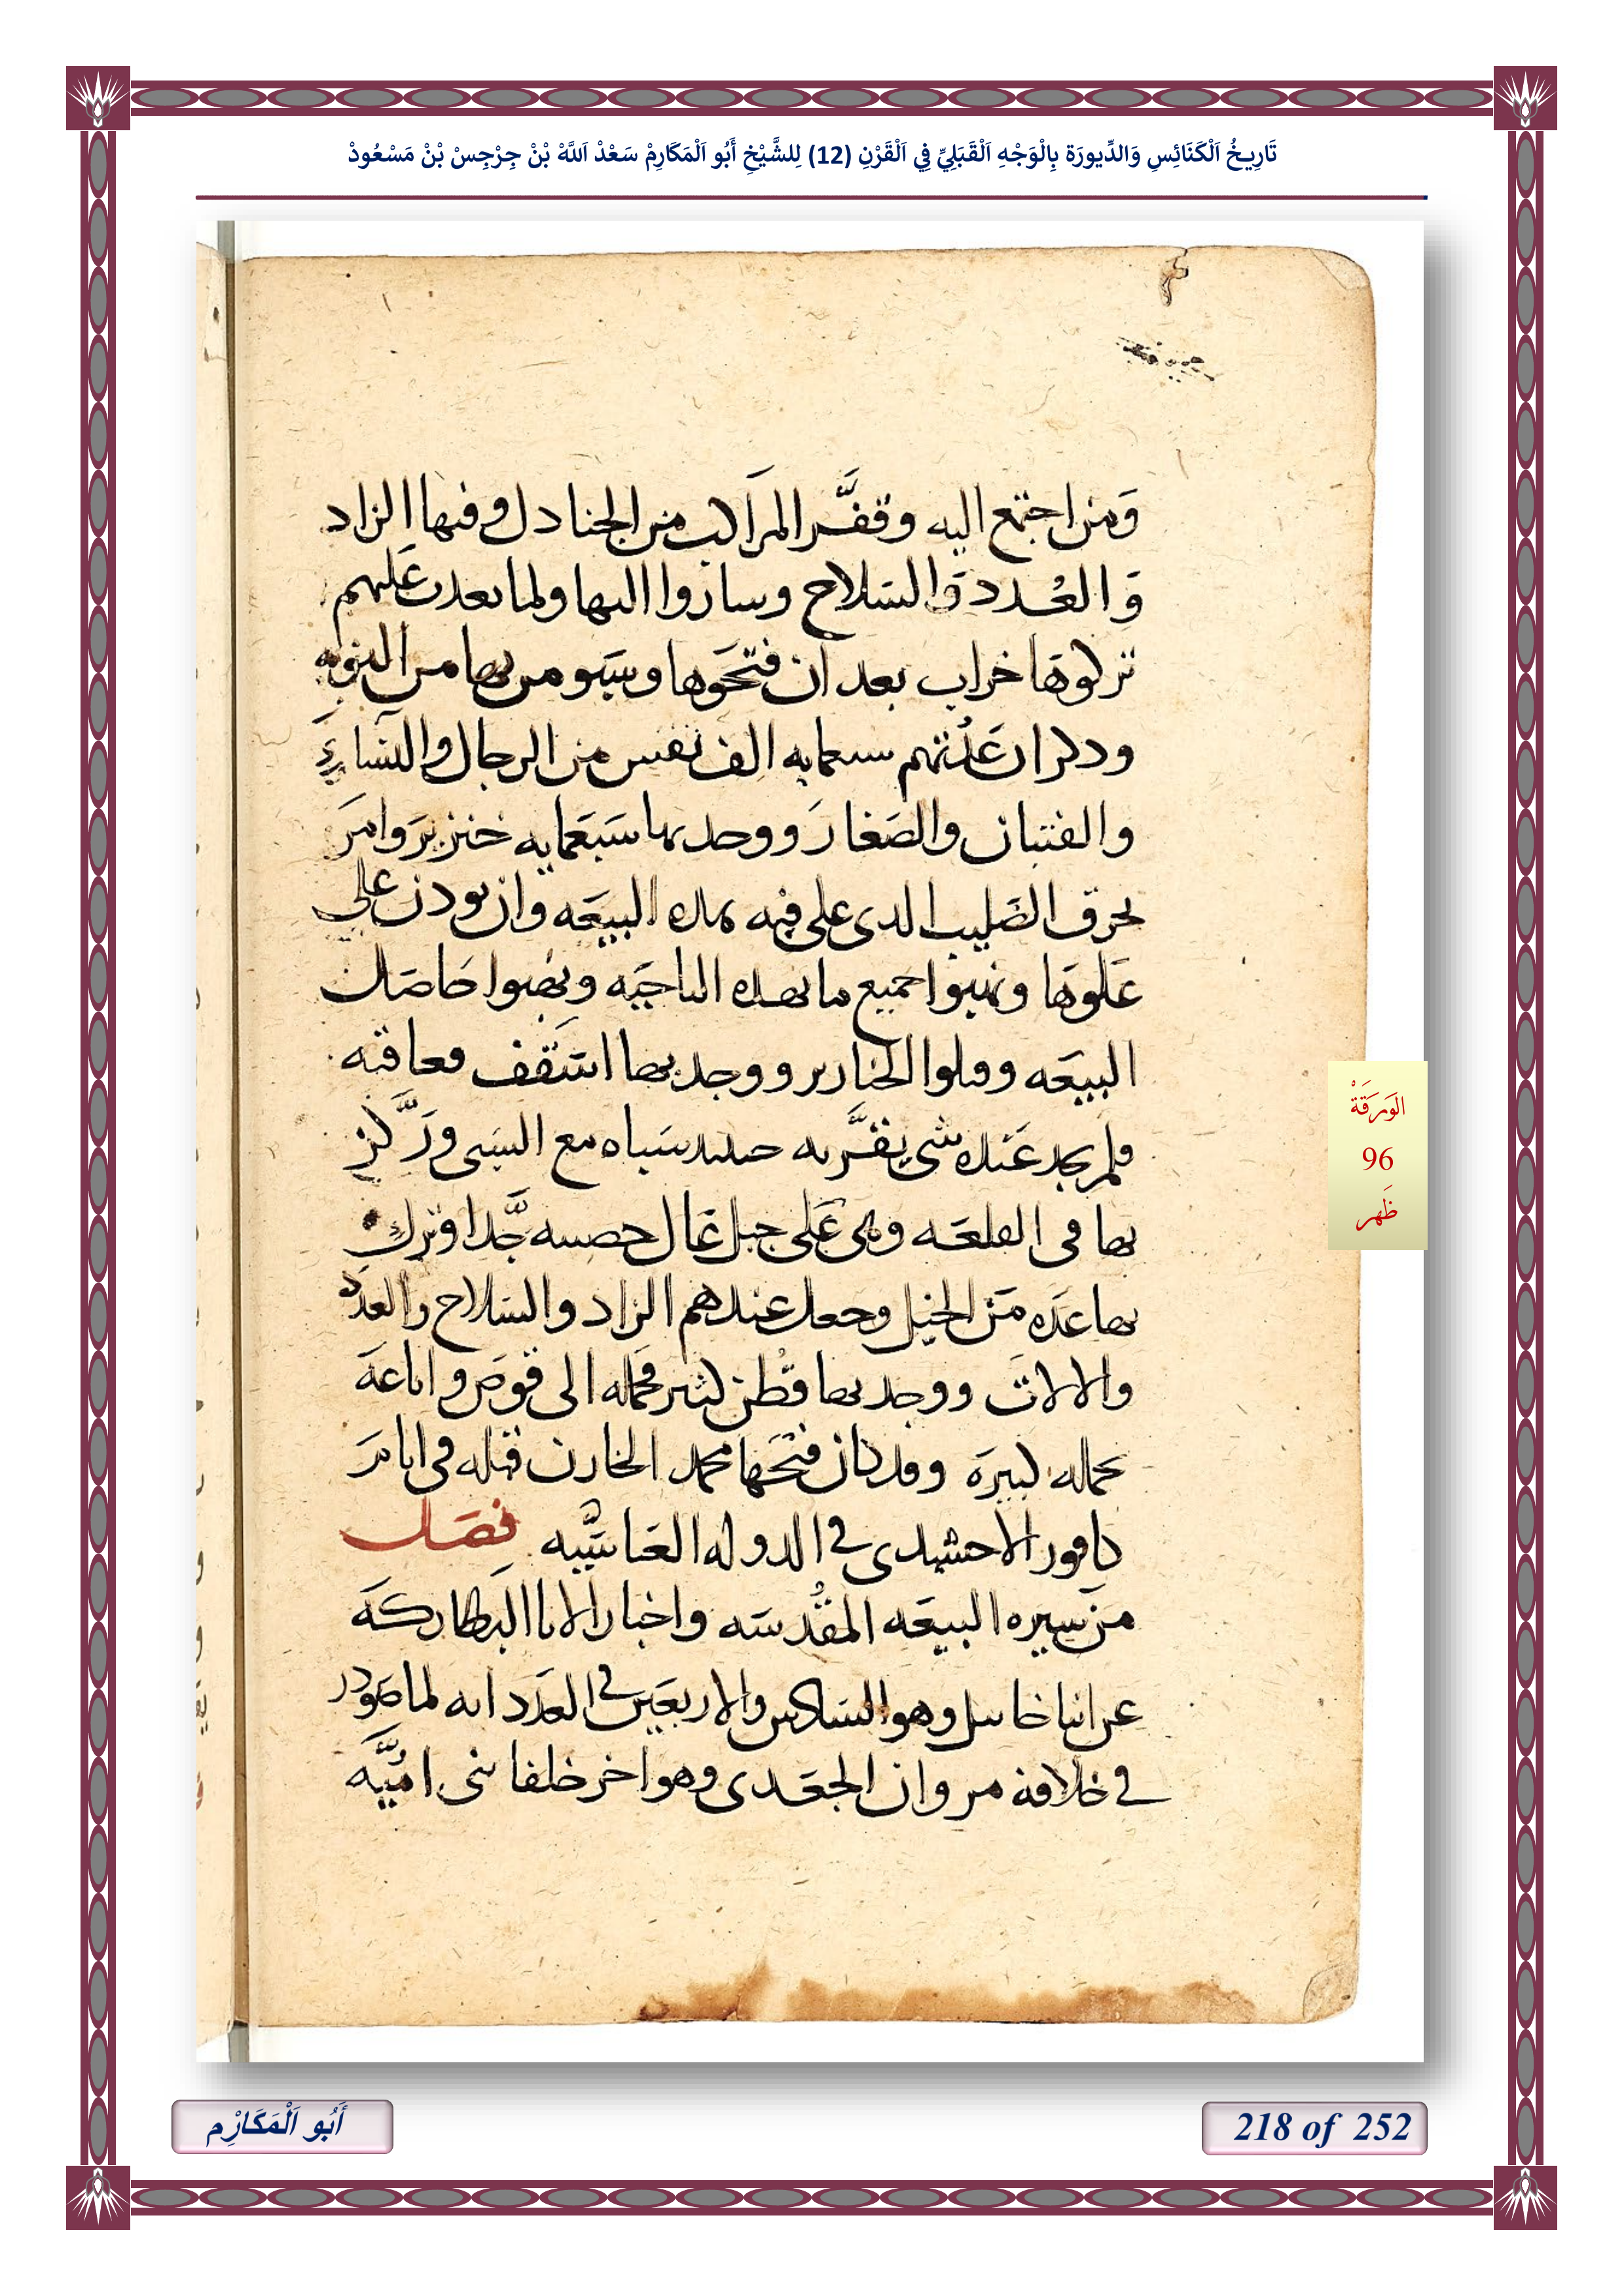 تَارِيخُ اَلْكَنَائِسِ وَالدِّيورَة بِالْوَجْهِ اَلْقَبَلِيِّ فِي اَلْقَرْنِ (12) لِلشَّيْخِ أَبُو اَلْمَكَارِمْ سَعْدْ اَللَّهْ بْنْ جِرْجِسْ بْنْ مَسْعُودْ
وَمن اجتمع اليه وقفَّر المرَاكب من الجنادل وفيها الزاد
وَالعُدد وَالسلاح وساروا اليها ولما بعدت عَليهم
تركوهَا خراب بعد ان فتحَوها وسَبو من بها من النوبه
ودكر ان عَدُتهم سبعمايه الف نفس من الرجال والنسَا
والفتيان والصَغار ووجد بها سَبَعمايه خنزير وامرَ
بحرق الصَليب الدى على قبه هاده البيعَه وان يودن على
عَلوهَا ونهبوا جميع ما بهده الناحيَه ونهَبوا حَاصَل
البيعَه وقتلوا الخنازير ووجد بها اسَقف فعاقبه
فلم يجد عَنده شى يقرَّ به حينيد سَباه مع السَبى ورَكَّز
بها فى القلعَه وهى عَلى جبل عَال حصينه جَّدا وترك
بها عدَه مَن الخيل وجعل عندهم الزاد والسَلاح والعدَه
والالاتَ ووجد بها قُطن كثير فحمله الى قوصَ واباعَهَ
بجمله كبيرَه وقد كان فتحَها محمد الخازن قبله فى ايامَ
كافور الاخشيدى فى الدوله العَباسَّيه فصَل
مَن سيره البيعَه المقُدسَه واخبار الابا البَطاركَه
عن انبا خاييل وهو السَادس والاربعَين فى العَدَد انه لما صَودر
فى خلافة مروان الجعَدى وهو اخر خلفا بنى امُيَّه
الوَرَقَةْ
96
ظَهر
أَبُو اَلْمَكَارِْم
218 of 252